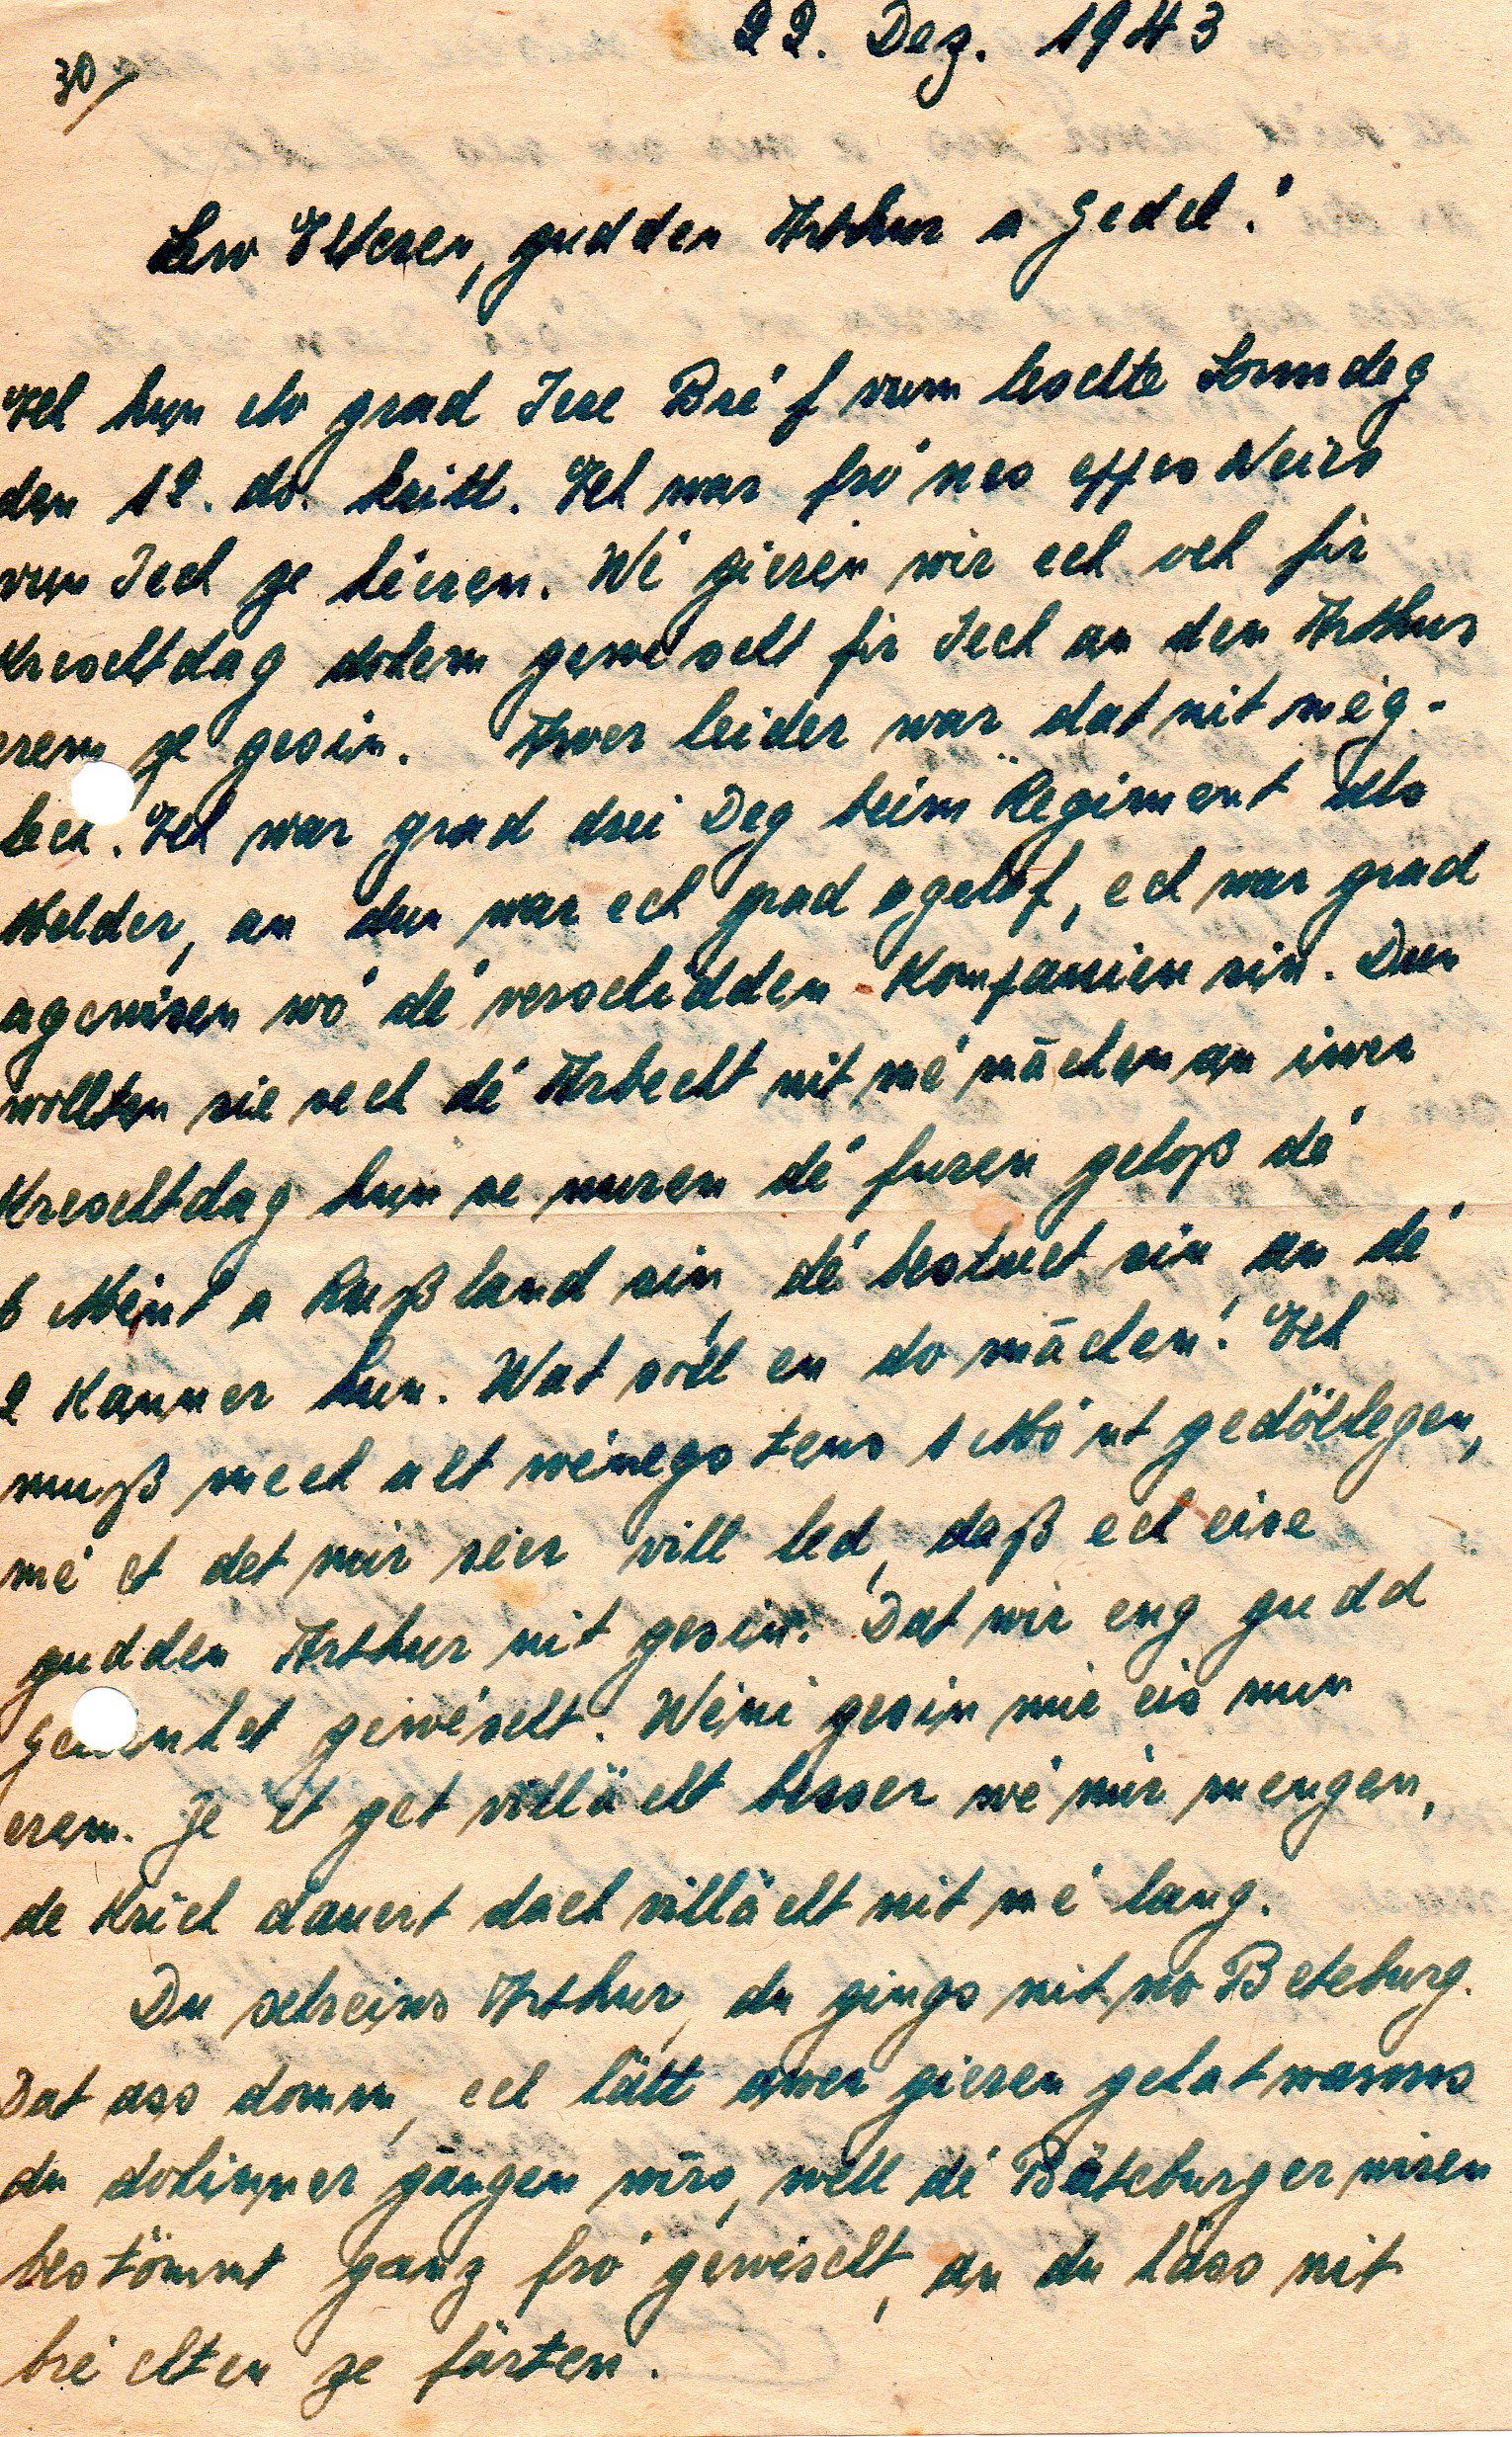 22. Dez. 1943
30/
Lew Elteren, gudden Arthur a Gedel!
Ech hun elo grad Iere Bréf vum leschte Sonndeg
den 12. do. kritt. Ech war fro nes eppes Neies
vun Iech ze héieren. Wé gieren wir ech och fir
Kreschtdag dohem gewéscht fir Iech an den Arthur
erem ze gesin. Awer leider war dat nit még-
lech. Ech war grad drei Deg beim Regiment als
Melder, an dun war ech grad agelâf, ech war grad
agewisen wo dé verschidden Kompanien sin. Dun
wollten sie sech dé Arbecht nit mé mächen an iwer
Kreschtdag hun se nuren dé furen geloß dé
6 Mént a Rußland sin, dé bestuet sin an dé
2 Kanner hun. Wat soll en do mächen! Ech
muß mech alt wéinegstens 1 Mo'nt gedöllegen,
mé et det mir séier vill led, daß ech eise
gudden Arthur nit gesin. Dat wir eng gudd
Gelenhet gewéscht. Wéini gesin mir eis nun
erem. Je et get villäicht besser wé mir mengen,
de Krich dauert dach villäicht nit mé lang.
Du schreiws Arthur, du gings nit no Beteburg.
Dat ass domm, ech hätt awer gieren gehat wanns
du dohinner gängen wirs, well dé Bäteburger wiren
bestömmt ganz fro gewéscht, an du häss nit
bréichten ze färten.